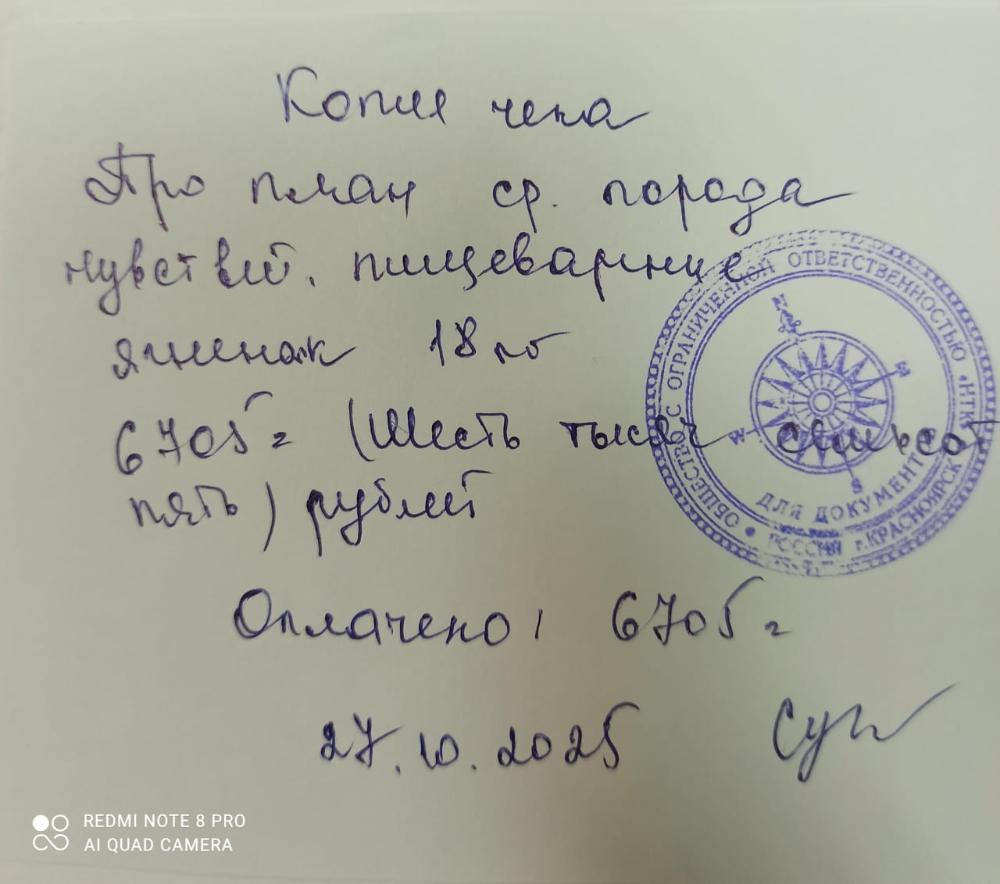 Копия чека
Про план ср. порода
чувствит. пищеварение
ягненок 18 кг
6705= (Шесть тысяч семьсот
пять) рублей
Оплачено: 6705=
27.10.2025
ОБЩЕСТВО С ОГРАНИЧЕННОЙ ОТВЕТСТВЕННОСТЬЮ «НТК
ДЛЯ ДОКУМЕНТ
РОССИЯ г.КРАСНОЯРСК
N
W
S
REDMI NOTE 8 PRO
AI QUAD CAMERA